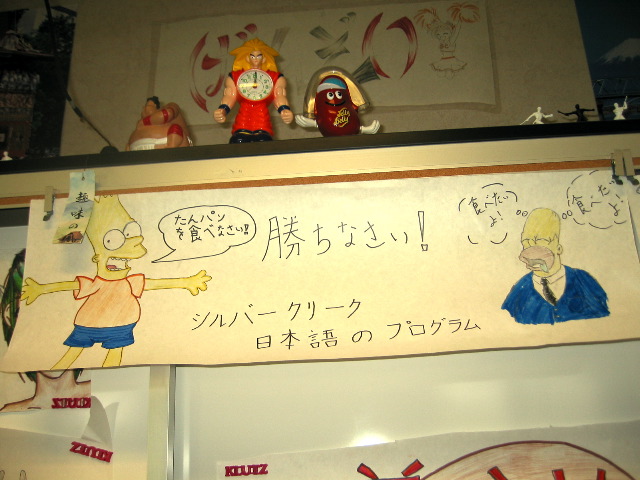 がんばれ!
Jelly
Belly
趣味の
たんパン
を食べなさい!!
勝ちなさい!
食べたい
よ!
食べたい
よ!
シルバークリーク
日本語のプログラム
KLUTZ